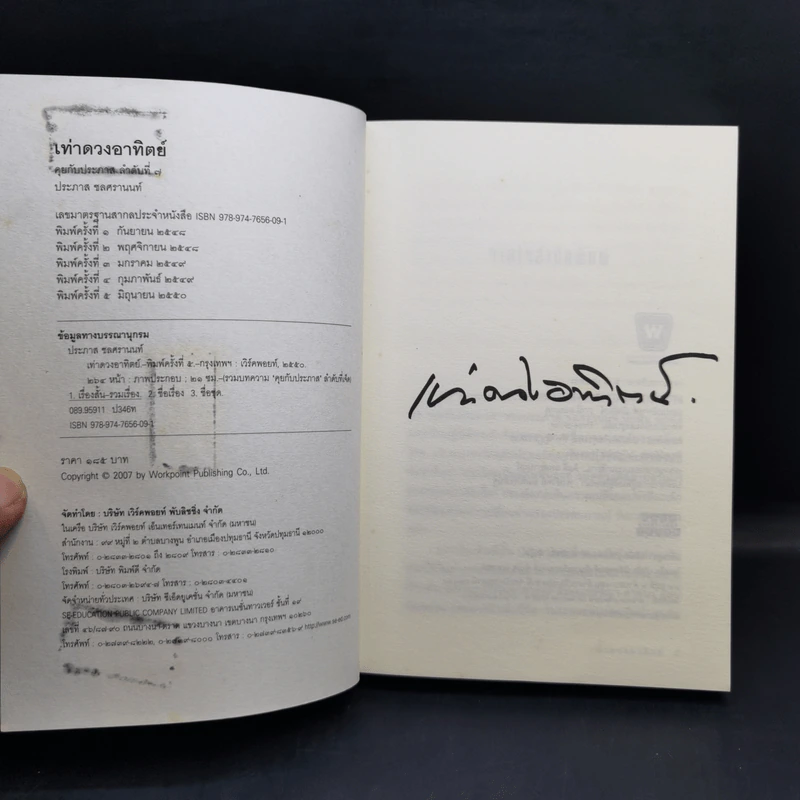 เท่าดวงอาทิตย์
คุยกับประภาส ลำดับที่ ๗
ประภาส ชลศรานนท์
เลขมาตรฐานสากลประจำหนังสือ ISBN 978-974-7656-09-1
พิมพ์ครั้งที่ ๑ กันยายน ๒๕๔๘
พิมพ์ครั้งที่ ๒ พฤศจิกายน ๒๕๔๘
พิมพ์ครั้งที่ ๓ มกราคม ๒๕๔๙
พิมพ์ครั้งที่ ๔ กุมภาพันธ์ ๒๕๔๙
พิมพ์ครั้งที่ ๕ มิถุนายน ๒๕๕๐
ข้อมูลทางบรรณานุกรม
ประภาส ชลศรานนท์
เท่าดวงอาทิตย์.-พิมพ์ครั้งที่ ๕.-กรุงเทพฯ : เวิร์คพอยท์, ๒๕๕๐.
๒๖๔ หน้า : ภาพประกอบ : ๒๑ ซม.-(รวมบทความ "คุยกับประภาส" ลำดับที่เจ็ด)
1. เรื่องสั้น-รวมเรื่อง. 2. ชื่อเรื่อง 3. ชื่อชุด.
089.95911 ป346ท
ISBN 978-974-7656-09-1
ราคา ๑๘๕ บาท
Copyright © 2007 by Workpoint Publishing Co., Ltd.
จัดทำโดย : บริษัท เวิร์คพอยท์ พับลิชชิ่ง จำกัด
ในเครือ บริษัท เวิร์คพอยท์ เอ็นเทอร์เทนเมนท์ จำกัด (มหาชน)
สำนักงาน : ๙๙ หมู่ที่ ๒ ตำบลบางพูน อำเภอเมืองปทุมธานี จังหวัดปทุมธานี ๑๒๐๐๐
โทรศัพท์ : ๐-๒๘๓๓-๒๘๐๑ ถึง ๒๘๐๙ โทรสาร : ๐-๒๘๓๓-๒๘๑๐
โรงพิมพ์ : บริษัท พิมพ์ดี จำกัด
โทรศัพท์ : ๐-๒๘๐๓-๒๖๙๔-๗ โทรสาร : ๐-๒๘๐๓-๔๔๐๑
จัดจำหน่ายทั่วประเทศ : บริษัท ซีเอ็ดยูเคชั่น จำกัด (มหาชน)
SE-EDUCATION PUBLIC COMPANY LIMITED อาคารเนชั่นทาวเวอร์ ชั้นที่ ๑๙
เลขที่ ๔๖/๘๗-๙๐ ถนนบางนา-ตราด แขวงบางนา เขตบางนา กรุงเทพฯ ๑๐๒๖๐
โทรศัพท์ : โทรสาร : http://www.se-ed.com
เท่าดวงอาทิตย์.